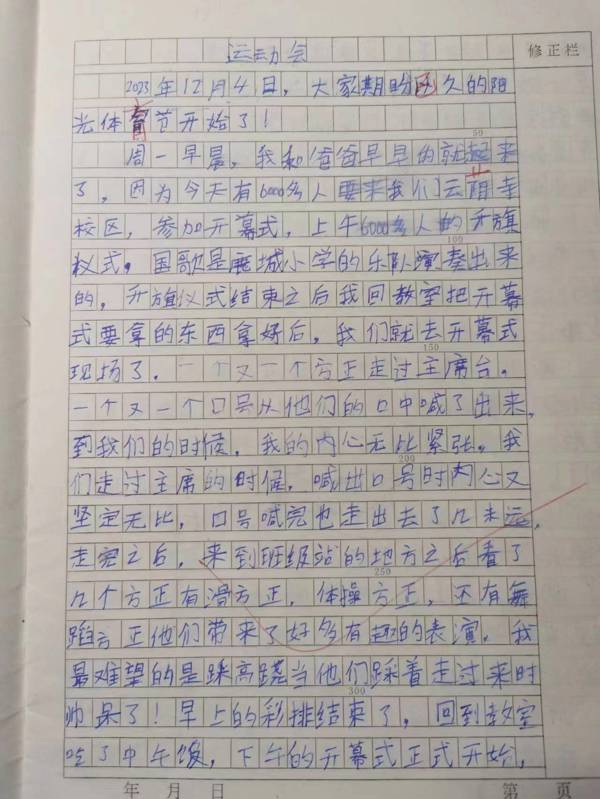 运动会
修正栏
2023年12月4日，大家期盼已久的阳
光体育节开始了！
50
周一早晨，我和爸爸早早的就起来
了，因为今天有6000多人要来我们云阳寺
校区，参加开幕式，上午6000多人的升旗
100
仪式。国歌是鹿城小学的乐队演奏出来
的，升旗仪式结束之后我回教室把开幕
式要拿的东西拿好后，我们就去开幕式
150
现场了．一个又一个方正走过主席台。
一个又一个口号从他们的口中喊了出来，
到我们的时候，我的内心无比紧张。我
200
们走过主席的时候，喊出口号时内心又
坚定无比，口号喊完也走出去了几米远，
走完之后，来到班级站的地方之后看了
250
几个方正有滑方正，体操方正，还有舞
蹈方正他们带来了好多有趣的表演，我
最难望的是踩高跷当他们踩着走过来时
300
帅呆了！早上的彩排结束了，回到教室
吃了中午饭，下午的开幕式正式开始，
年 月 日 第 页